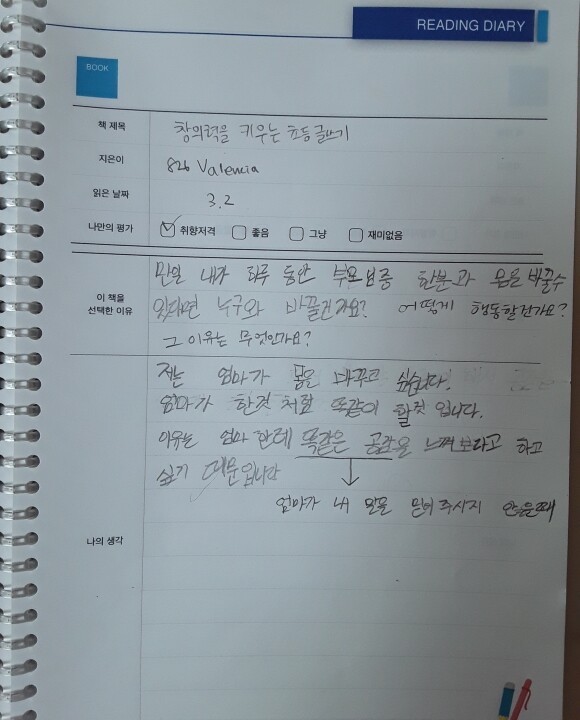 READING DIARY
BOOK
책 제목
창의력을 키우는 초등글쓰기
지은이
826 Valencia
읽은 날짜
3.2
나만의 평가
취향저격
좋음
그냥
재미없음
이 책을
선택한 이유
만일 내가 하루 동안 부모님중 한분과 몸을 바꿀수
있다면 누구와 바꿀건가요? 어떻게 행동할건가요?
그 이유는 무엇인가요?
나의 생각
저는 엄마가 몸을 바꾸고 싶습니다.
엄마가 한것 처럼 똑같이 할것 입니다.
이유는 엄마 한테 똑같은 공감을 느껴보라고 하고
싶기 때문입니다
엄마가 내 말을 믿어 주시지 않을때